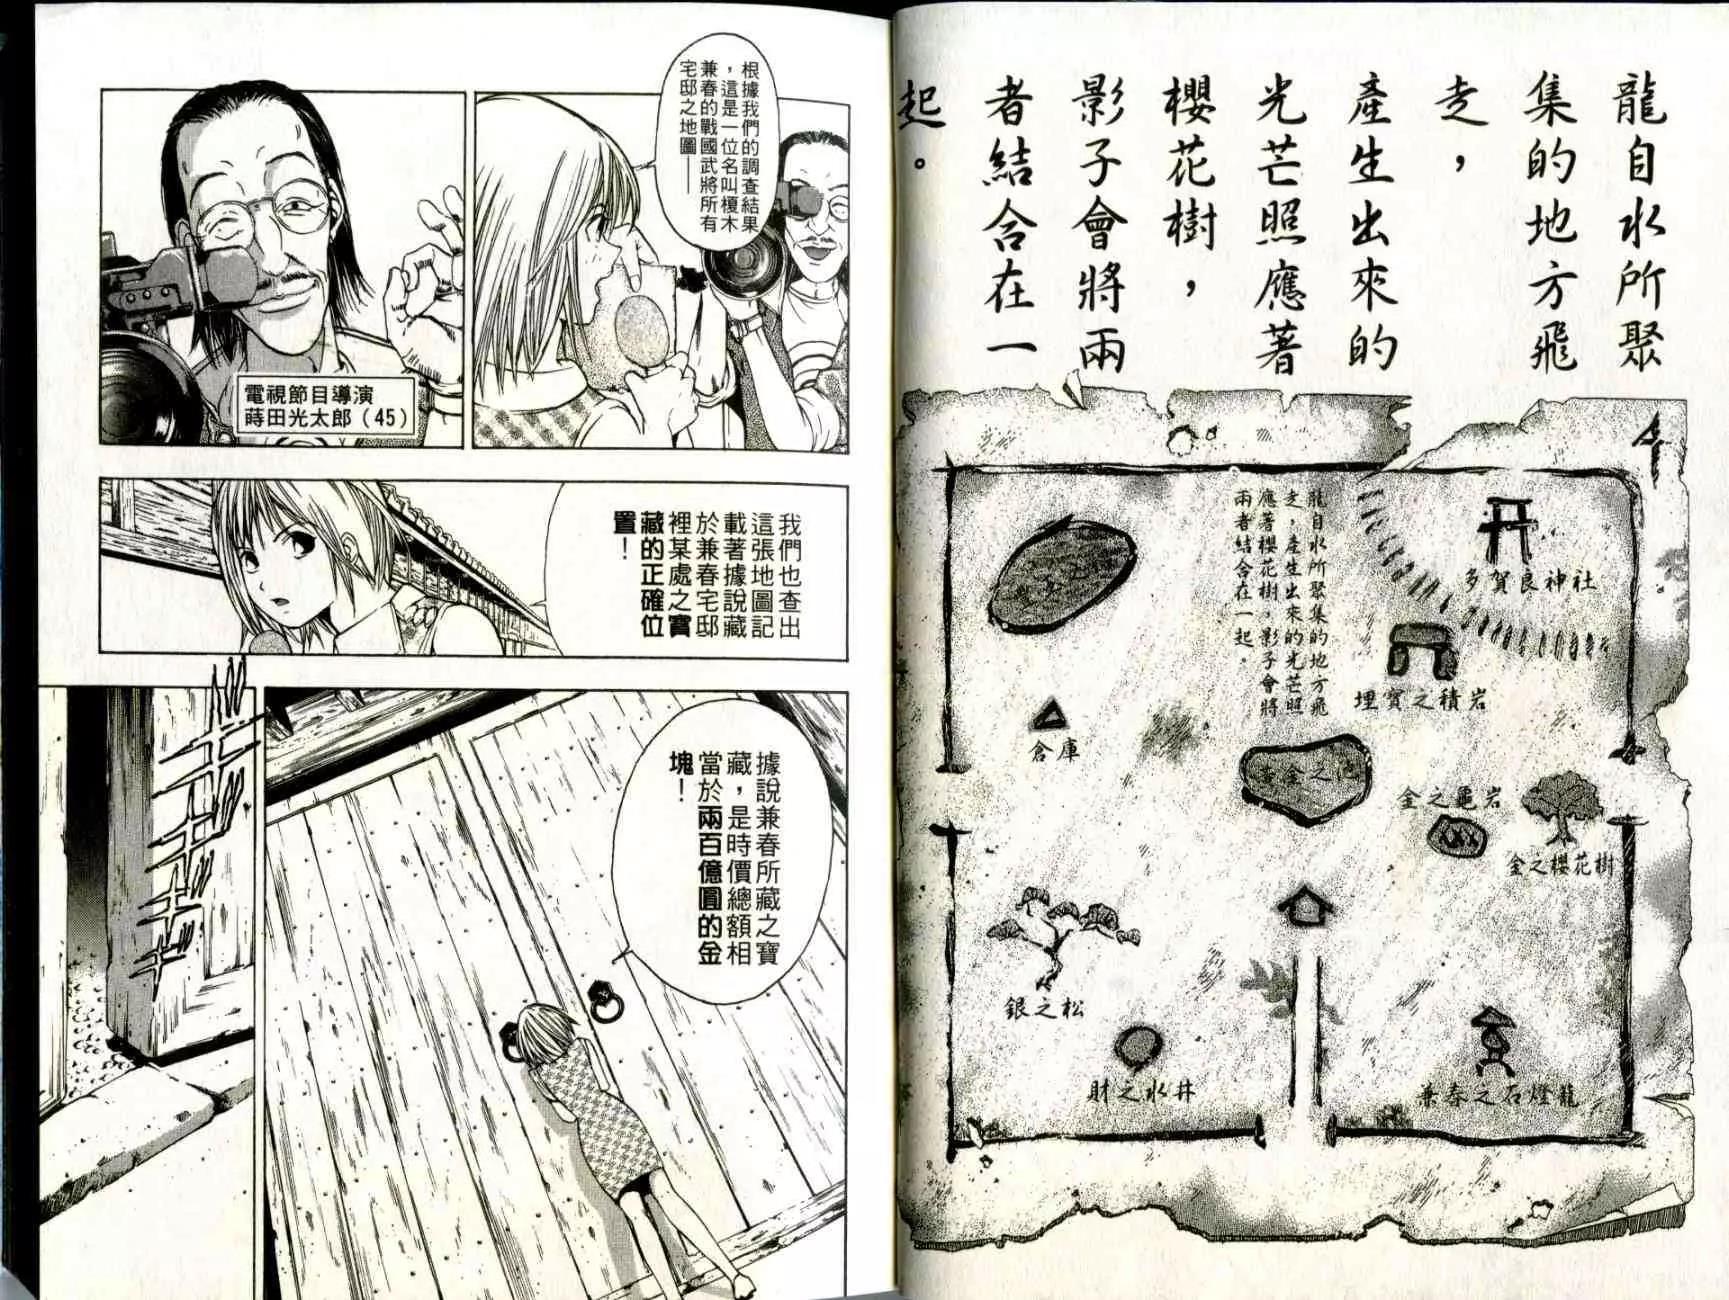 龍自水所聚
集的地方飛
走，
產生出來的
光芒照應著
櫻花樹，
影子會將兩
者結合在一
起。
龍自水所聚集的地方飛
走，產生出來的光芒照
應著櫻花樹，影子會將
兩者結合在一起。
多賀良神社
埋寶之積岩
倉庫
黃金之池
金之龜岩
金之櫻花樹
銀之松
財之水井
兼春之石燈籠
根據我們的調查結果
，這是一位名叫榎木
兼春的戰國武將所有
宅邸之地圖——
電視節目導演
蒔田光太郎（45）
我們也查出
這張地圖記
載著據說藏
於兼春宅邸
裡某處之寶
藏的正確位
置！
據說兼春所藏之寶
藏，是時價總額相
當於兩百億圓的金
塊！